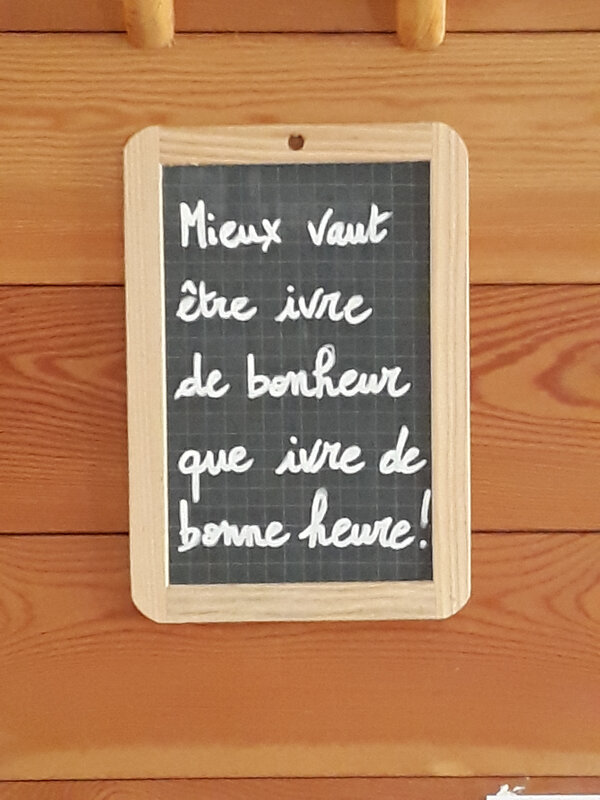 Mieux vaut
être ivre
de bonheur
que ivre de
bonne heure!